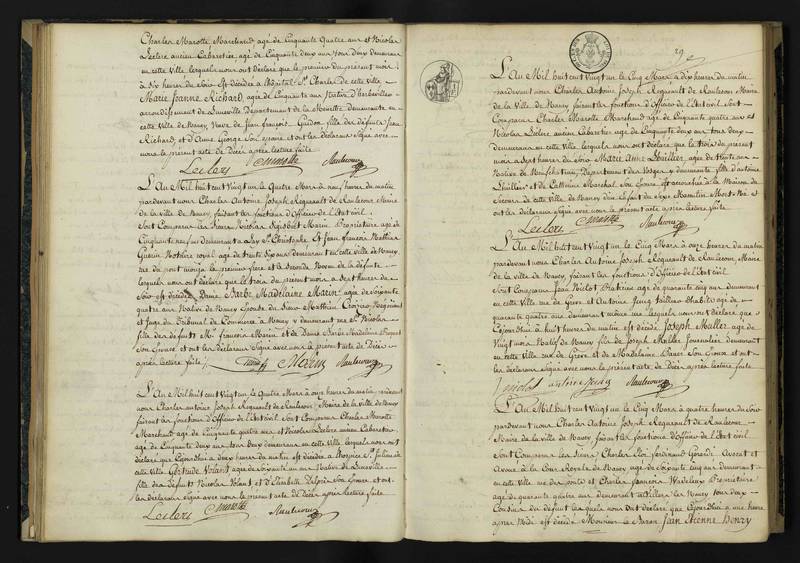 Charles Marotte Marchand, agé de Cinquante quatre ans et Nicolas
Leclerc ancien Cabaretier, agé de Cinquante deux ans tous deux demeurans
en cette Ville lesquels nous ont déclaré que le premier du présent mois
à dix heures du soir est décédée à l'hôpital St. Charles de cette ville
Marie Jeanne Richard, agée de Cinquante ans Native d'herbéviller
arrondissement de Lunéville Département de la Meurthe demeurante en
cette Ville de Nancy, Veuve de Jean françois Guidon fille des défunts Jean
Richard, et d'Anne George Son épouse et ont les déclarans Signé avec
nous le présent acte de Décès après lecture faite
Leclerc Marotte Raulecour
L'An Mil huit cent Vingt un le Quatre Mars à neuf heures du matin
pardevant nous Charles Antoine Joseph Regnault de Raulecour Maire
de la ville de Nancy, faisant les fonctions d'Officier de l'Etat civil,
Sont Comparus les Sieurs Nicolas Marin Propriétaire agé de
Cinquante neuf ans demeurant à Lay St. Christophe et Jean françois
Notaire royal, agé de trente six ans demeurant en cette ville de Nancy
rue du pont mouja le premier frère et le second Neveu de la défunte
lesquels nous ont déclaré que le trois du présent mois à sept heures du
Soir est décédée Dame Barbe Madelaine Marin agée de soixante
quatre ans Native de Nancy Epouse du Sieur Mathieu Négociant
et Juge du Tribunal de Commerce à Nancy y demeurant rue St. Nicolas
fille des défunts Mr. françois Marin et de Dame Barbe Madelaine
Son Epouse et ont les déclarans Signé avec nous le présent acte de Décès
après lecture faite
Marin Raulecour
L'An Mil huit cent Vingt un le Quatre Mars à onze heures du matin pardevant
nous Charles Antoine Joseph Regnault de Raulecour, Maire de la ville de Nancy
faisant les fonctions d'Officier de l'Etat civil Sont Comparus Charles Marotte
Marchand agé de Cinquante quatre ans et Nicolas Leclerc ancien Cabaretier,
agé de Cinquante deux ans tous Deux demeurans en cette Ville lesquels nous ont
déclaré que Cejourd'hui à deux heures du matin est décédée à l'hospice St. Julien de
cette Ville Gertrude Volant agée de soixante un ans Native de Lunéville
fille des défunts Nicolas Volant et d'Elisabeth Son Epouse et ont
les déclarans Signé avec nous le présent acte de Décès après lecture faite
Leclerc Marotte Raulecour
29
L'An Mil huit cent Vingt un le Cinq Mars à dix heures du matin
pardevant nous Charles Antoine Joseph Regnault de Raulecour Maire
de la Ville de Nancy faisant les fonctions d'Officier de l'Etat civil Sont
Comparus Charles Marotte Marchand agé de Cinquante quatre ans et
Nicolas Leclerc ancien Cabaretier agé de Cinquante deux ans tous deux
demeurans en cette ville lesquels nous ont déclaré que le trois du présent
mois à sept heures du soir Marie Anne Leuillier, agée de trente ans
Native de Neufchateau, Département des Vosges y demeurante fille d'antoine
Leuillier et de Catherine Marchal Son Epouse est accouchée à la Maison de
Secours de cette Ville de Nancy d'un Enfant du Sexe Masculin Mort-Né et
ont les déclarans Signé avec nous le présent acte après lecture faite
Leclerc Marotte Raulecour
L'An Mil huit cent Vingt un le Cinq Mars à onze heures du matin
pardevant nous Charles Antoine Joseph Regnault de Raulecour, Maire
de la ville de Nancy, faisant les fonctions d'Officier de l'Etat civil
Sont Comparus Jean agé de quarante cinq ans demeurant
en cette Ville rue de Grève et Antoine Tailleur d'habits agé de
quarante quatre ans demeurant même rue lesquels nous ont déclaré que
Cejourd'hui à huit heures du matin est décédé Joseph Muller agé de
Vingt Mois Natif de Nancy fils de Joseph Muller Journalier demeurant
en cette Ville rue de Grève et de Madelaine Son Epouse et ont
les déclarans signé avec nous le présent acte de Décès après lecture faite
antoine Raulecour
L'An Mil huit cent Vingt un le Cinq Mars à quatre heures du soir
pardevant nous Charles Antoine Joseph Regnault de Raulecour
Maire de la ville de Nancy, faisant les fonctions d'Officier de l'Etat civil
Sont Comparus les Sieurs Charles Ferdinand Avocat et
Avoué à la Cour Royale de Nancy agé de soixante cinq ans demeurant
en cette ville rue des ponts et Charles françois Propriétaire
agé de quarante quatre ans demeurant à Nancy tous deux
Cousins du défunt lesquels nous ont déclaré que Cejourd'hui à une heure
après Midi est décédé Monsieur le Baron Jean Etienne Henry